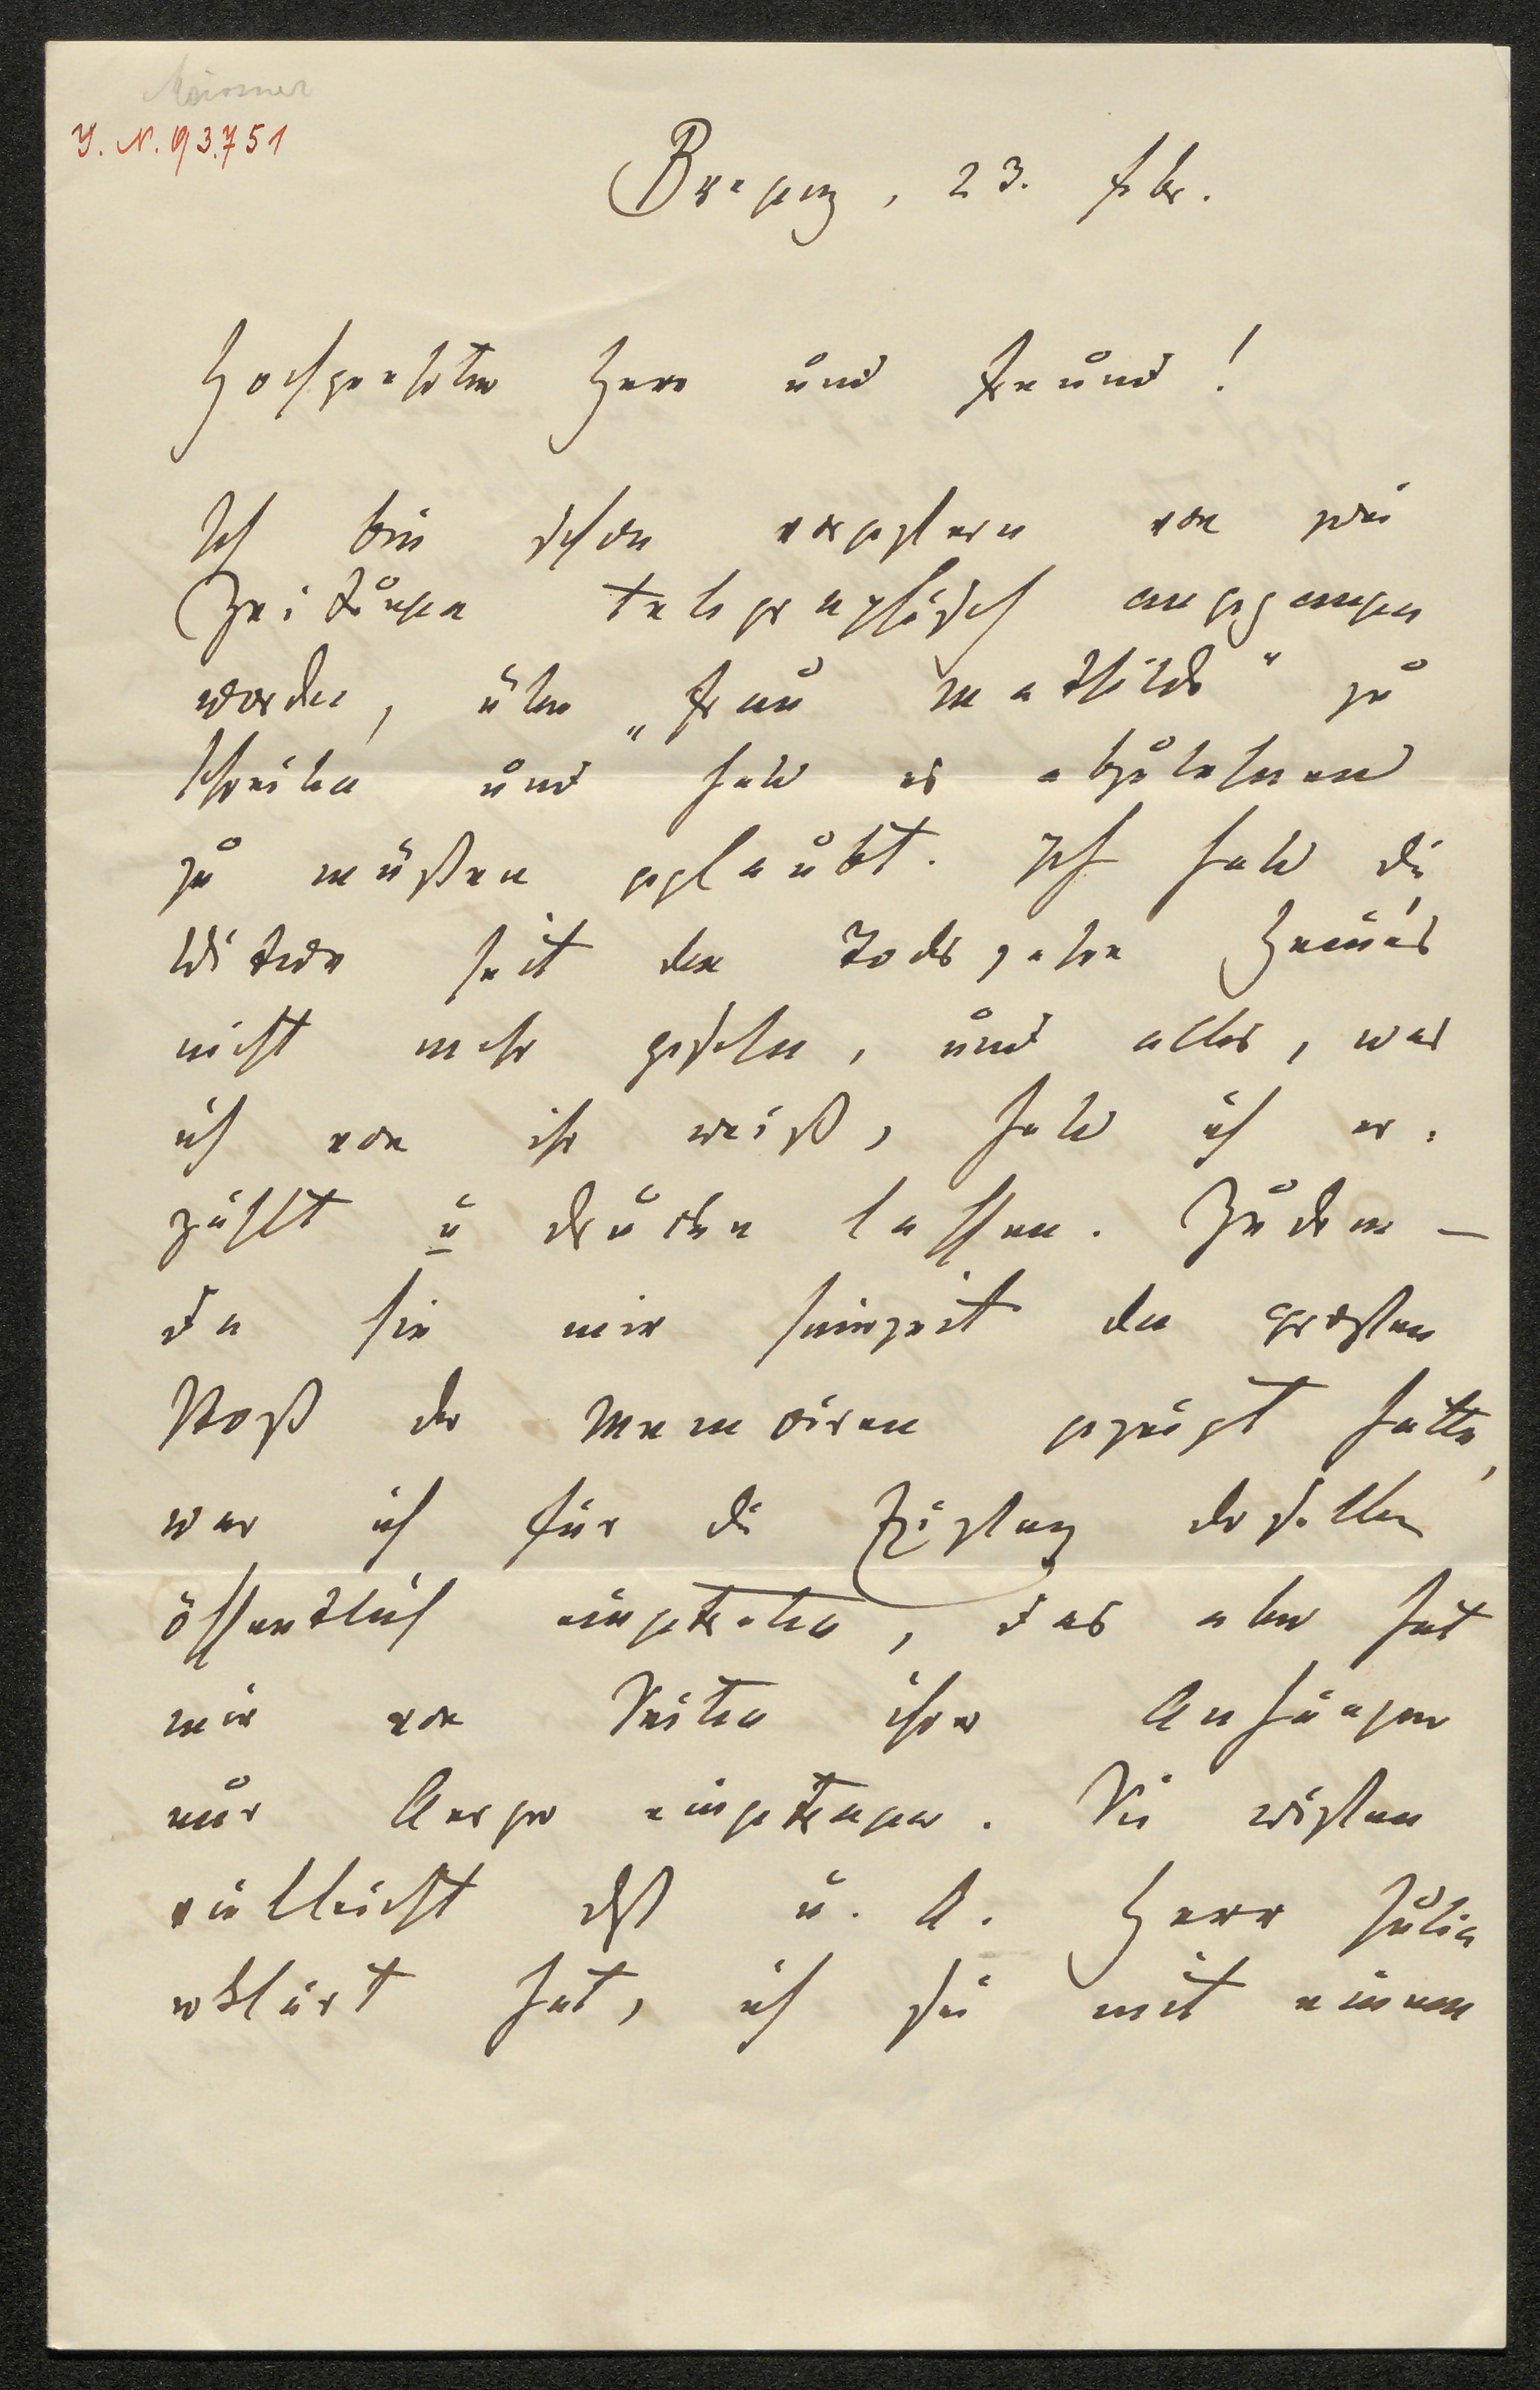 Meissner
I. N. 93.751
Bregenz, 23. Fbr.
Hochgeehrter Herr und Freund!
Ich bin schon vorgestern von zwei
Zeitungen telegraphisch angegangen
worden, über „Frau Mathilde" zu
schreiben und habe es abzulehnen
zu müßen geglaubt. Ich habe die
Witwe seit den Todesjahre Heine's
nicht mehr gesehen, und alles, was
ich von ihr weiß, habe ich er-
zählt u drucken lassen. Zudem –
da sie mir seinerzeit den großen
Stoß der Memoiren gezeigt hatte,
war ich für die Existenz derselben
öffentlich eingetreten, das aber hat
mir von Seiten ihrer Anhänger
nur Aerger eingetragen. Sie wißen
vielleicht dß u. A. Herr Julia
erklärt hat, ich sei mit einem